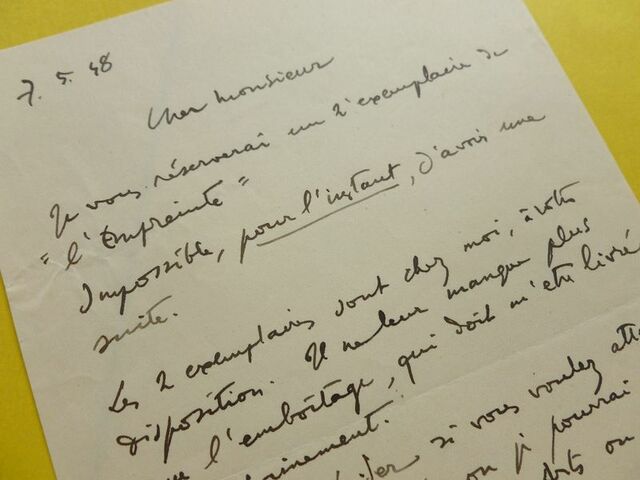 7. 5. 48
Cher Monsieur
Je vous réserverai un 2e exemplaire de
"l'Empreinte"
Impossible, pour l'instant, d'avoir une
suite.
Les 2 exemplaires sont chez moi, à votre
disposition. Il ne leur manque plus
l'emboîtage, qui doit m'être livré
si vous voulez
je pourrai
ou